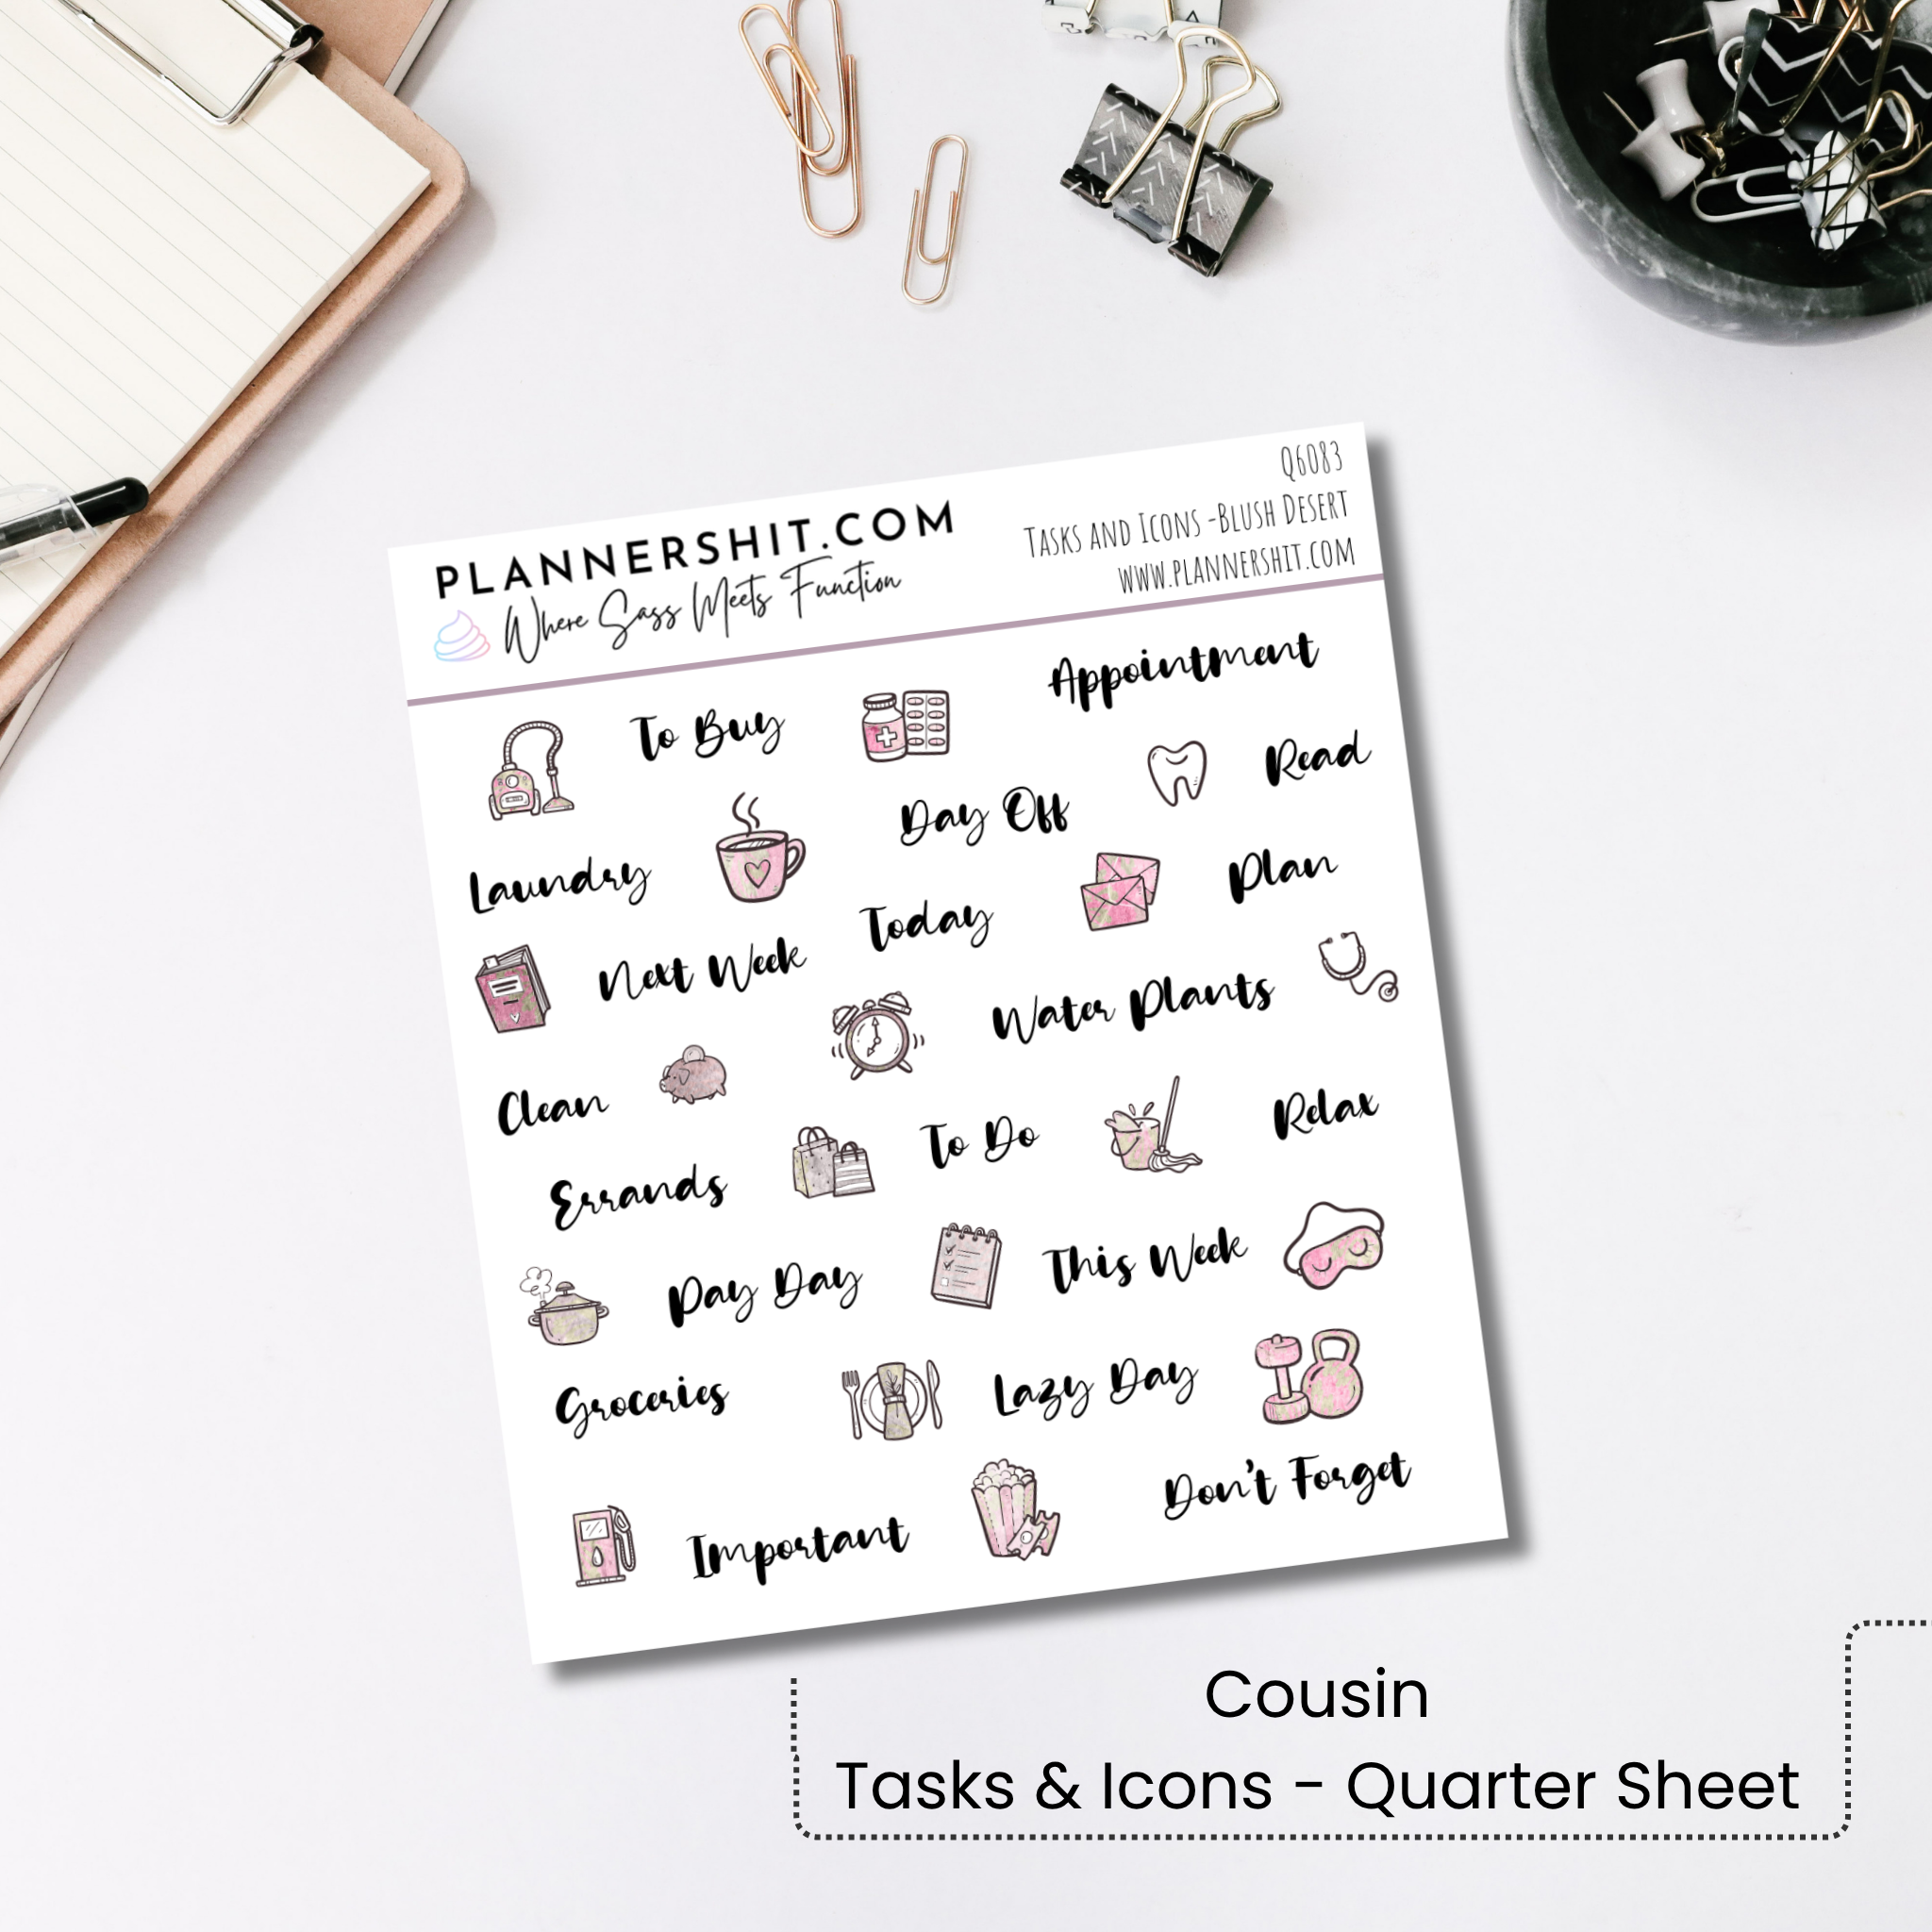 PLANNERSHIT.COM
Where Sass Meets Function
Q6083
Tasks and Icons -Blush Desert
www.plannershit.com
Appointment
To Buy
Read
Day Off
Laundry
Plan
Today
Next Week
Water Plants
Clean
Relax
To Do
Errands
This Week
Pay Day
Lazy Day
Groceries
Don't Forget
Important
Cousin
Tasks & Icons - Quarter Sheet